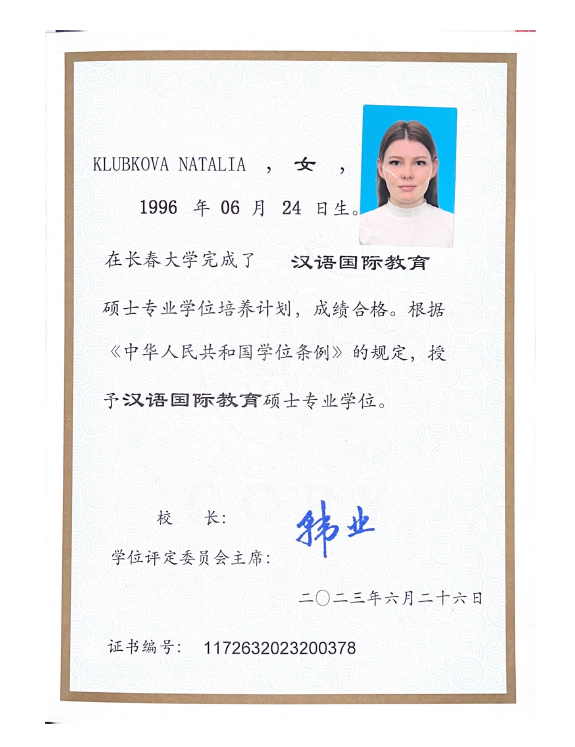 KLUBKOVA NATALIA ，女，
1996 年 06 月 24 日生。
在长春大学完成了 汉语国际教育
硕士专业学位培养计划，成绩合格。根据
《中华人民共和国学位条例》的规定，授
予汉语国际教育硕士专业学位。
校 长：
学位评定委员会主席：
二〇二三年六月二十六日
证书编号： 1172632023200378